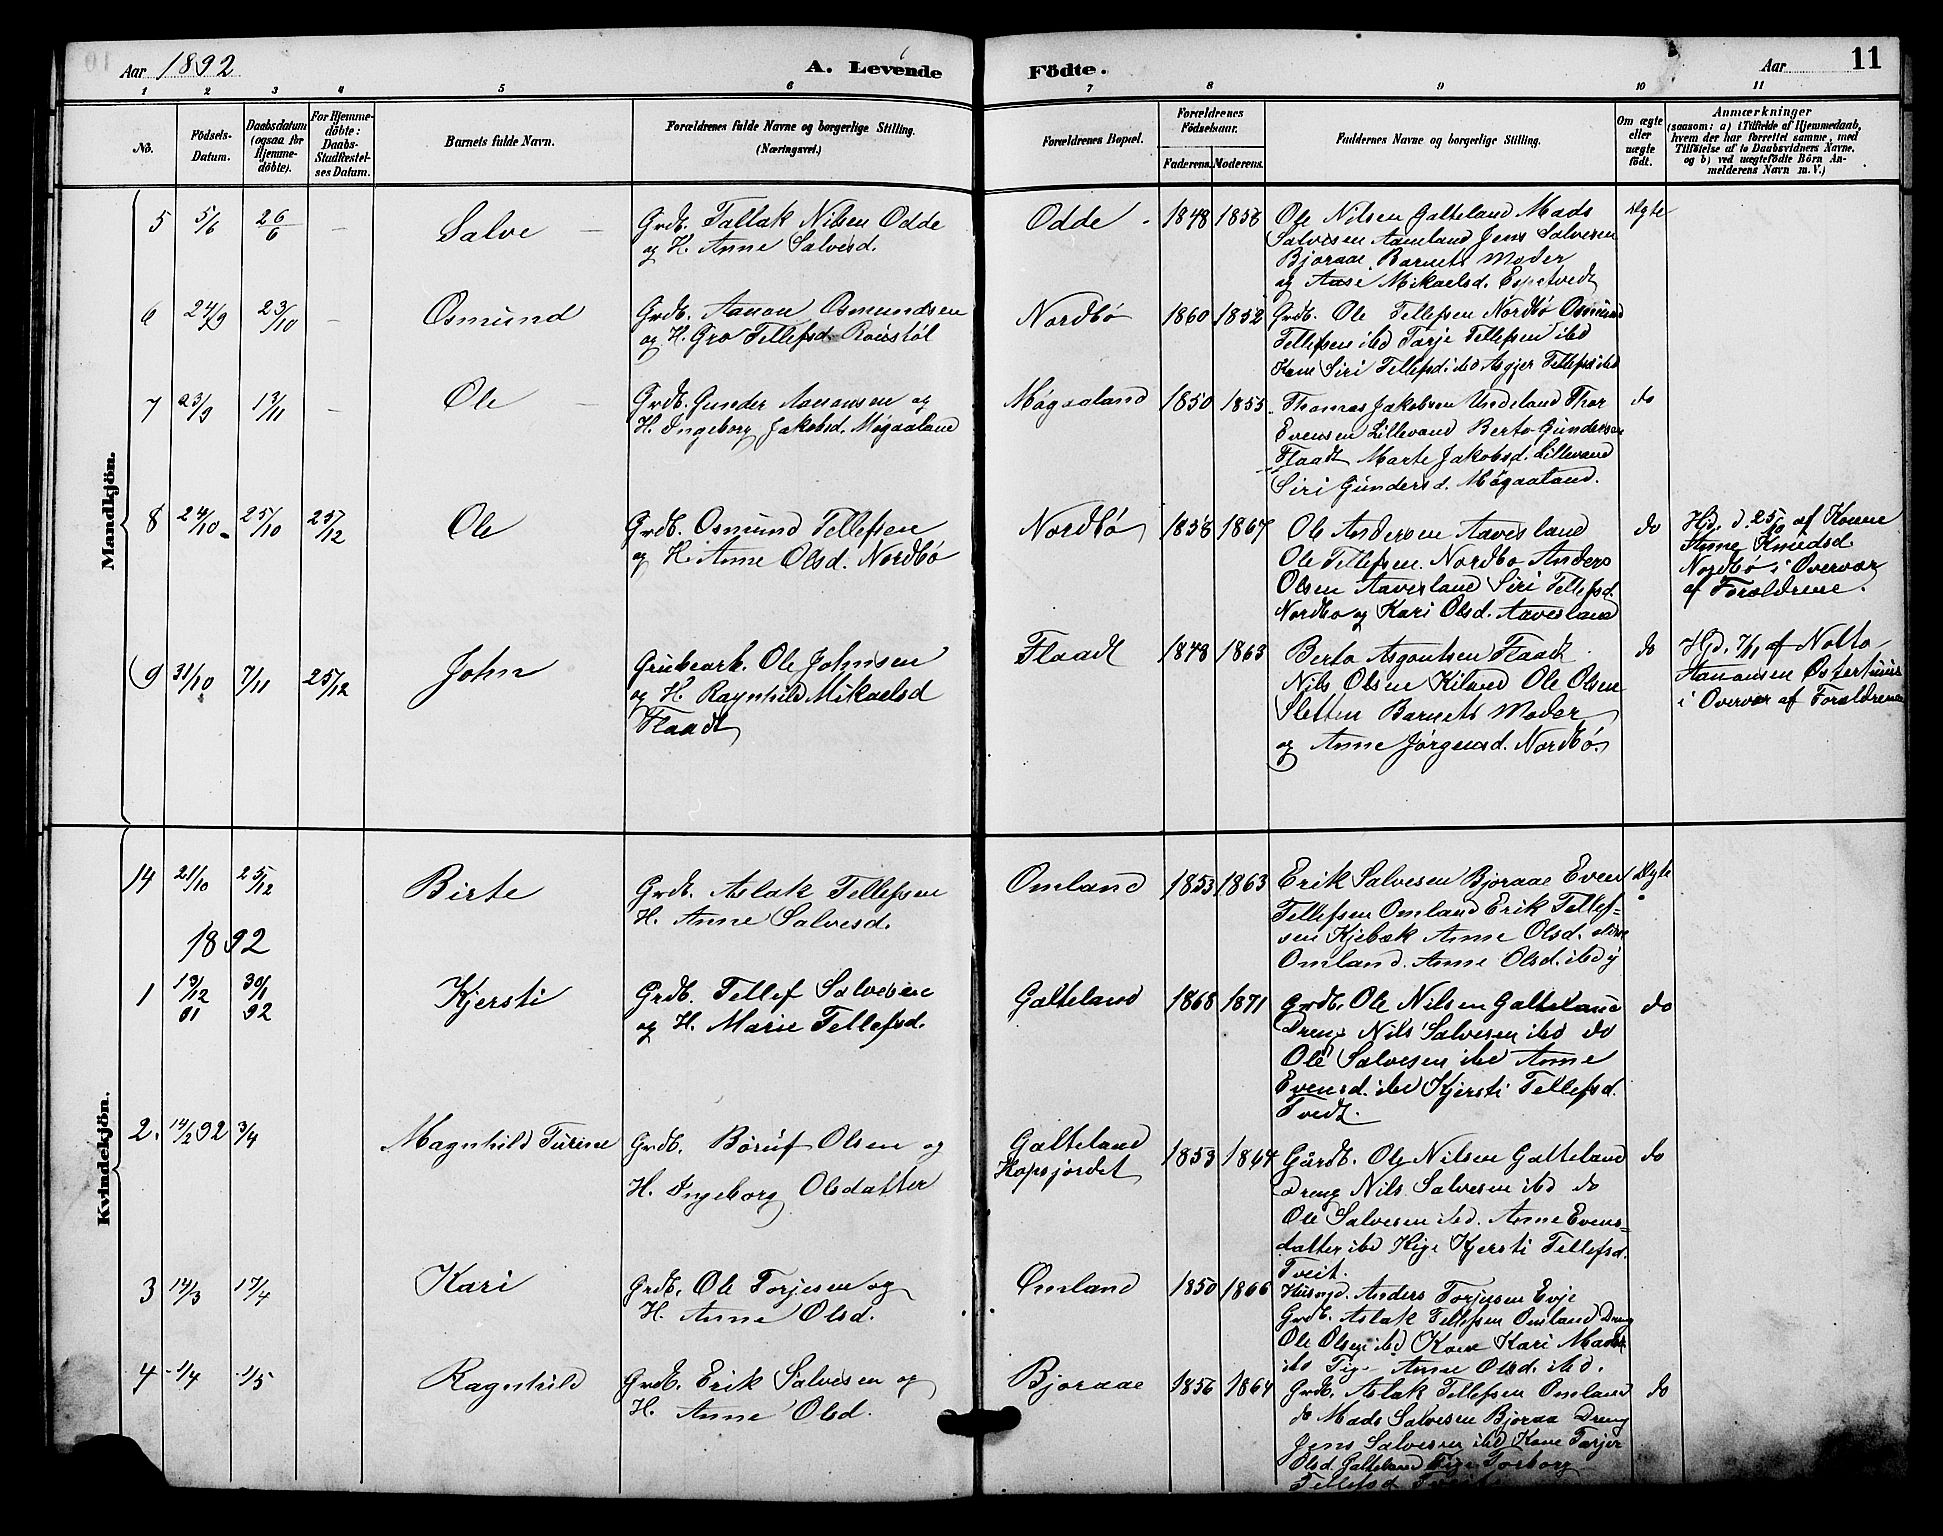 Aar 1892 A. Levende Födte. Aar 11
1 2 3 4 5 6 7 8 9 10 11
No. Födsels-Datum. Daabsdatum (ogsaa for Hjemmedöbte). For Hjemmedöbte: Daabs-Stadfæstelses Datum. Barnets fulde Navn. Forældrenes fulde Navne og borgerlige Stilling. (Næringsvei.) Forældrenes Bopæl. Forældrenes Födselsaar. Faderens. Moderens. Faddernes Navne og borgerlige Stilling. Om ægte eller uægte födt. Anmærkninger (saasom: a) i Tilfælde af Hjemmedaab, hvem der har forrettet samme, med Tilföielse af to Daabsvidners Navne, og b) ved uægtefödte Börn Anmelderens Navn m. V.)
Mandkjön.
5 5/6 26/6 — Salve — Grdb. Tallak Nilsen Odde
og H. Anne Salvesd.
Odde 1848 1856 Ole Nilsen Galteland Mads
Salvesen Aamland Jens Salvesen
Bjoraae, Barnets Moder
og Aase Mikaelsd. Espetvedt
Ægte
6 24/9 23/10 — Osmund Grdb. Aanon Osmundsen
og H. Gro Tellefsd.
Nordbø 1860 1852 Grdb. Ole Tellefsen Nordbø Osmund
Tellefsen ibd Tarje Tellefsen ibd
Kone Siri Tellefsd ibd Asgjer Tellefsd ibd
7 23/9 13/11 — Ole — Grdb. Gunder Aanonsen og
H. Ingeborg Jakobsd. Møgaaland
Møgaaland 1850 1855 Thomas Jakobsen Undeland Thor
Evensen Lillevand Berto Gundersen
Flaadt Marte Jakobsd. Lillevand
Siri Gundersd. Møgaaland.
do
8 24/10 25/10 25/12 Ole Grdb. Osmund Tellefsen
og H. Anne Olsd. Nordbø
Nordbø 1858 1867 Ole Andersen Aavesland
Ole Tellefsen Nordbø Anders
Olsen Aavesland Siri Tellefsd.
Nordbø og Kari Olsd. Aavesland
do
Hjd. d. 25/10 af Kone
Anne Knudsd
Nordbø i Overvær
af Forældrene.
9 31/10 7/11 25/12 John Grubearb. Ole Johnsen
og H. Ragnhild Mikaelsd
Flaadt
Flaadt 1848 1863 Berto Asgautsen Flaadt
Nils Olsen Kiland Ole Olsen
Sletten Barnets Moder
og Anne Jørgensd. Nordbø.
do
Hjd. 7/11 af
i Overvær af Forældrene
Kvindekjön.
14 21/10 25/12 Birte Grdb. Aslak Tellefsen
H. Anne Salvesd.
Omland 1853 1863 Erik Salvesen Bjoraae Even
Tellefsen Omland Erik Tellef=
sen Kjebæk Anne Olsd.
Omland. Anne Olsd. ibd
Ægte
1892
1 13/12 91 30/1 92 Kjersti Grdb. Tellef Salvesen
og H. Marie Tellefsd.
Galteland 1868 1871 Grdb. Ole Nilsen Galteland
Dreng Nils Salvesen ibd do
Ole Salvesen ibd Anne
Evensd. ibd Kjersti Tellefsd.
Tvedt.
do
2. 14/2 92 3/4 Magnhild Turine Grdb. Børuf Olsen og
H. Ingeborg Olsdatter
Galteland
Hopsjordet
1853 1864 Gårdb. Ole Nilsen Galteland
Dreng Nils Salvesen ibd do
Ole Salvesen ibd. Anne Evens=
datter ibd Pige Kjersti Tellefsd.
Tveit.
do
3 14/3 17/4 Kari Grdb. Ole Torjesen og
H. Anne Olsd.
Omland 1850 1866 Husmd. Anders Torjusen Evje
Grdb. Aslak Tellefsen Omland Dreng
Ole Olsen ibd Kone Kari
ibd Pige Anne Olsd. ibd.
4 1/4 1/5 Ragnhild Grdb. Erik Salvesen og
H. Anne Olsd.
Bjoraae 1856 1864 Grdb. Aslak Tellefsen Omland
do Mads Salvesen Bjoraa Dreng
Jens Salvesen ibd Kone Torjer
Olsd. Galteland Pige Torborg
Tellefsd
do